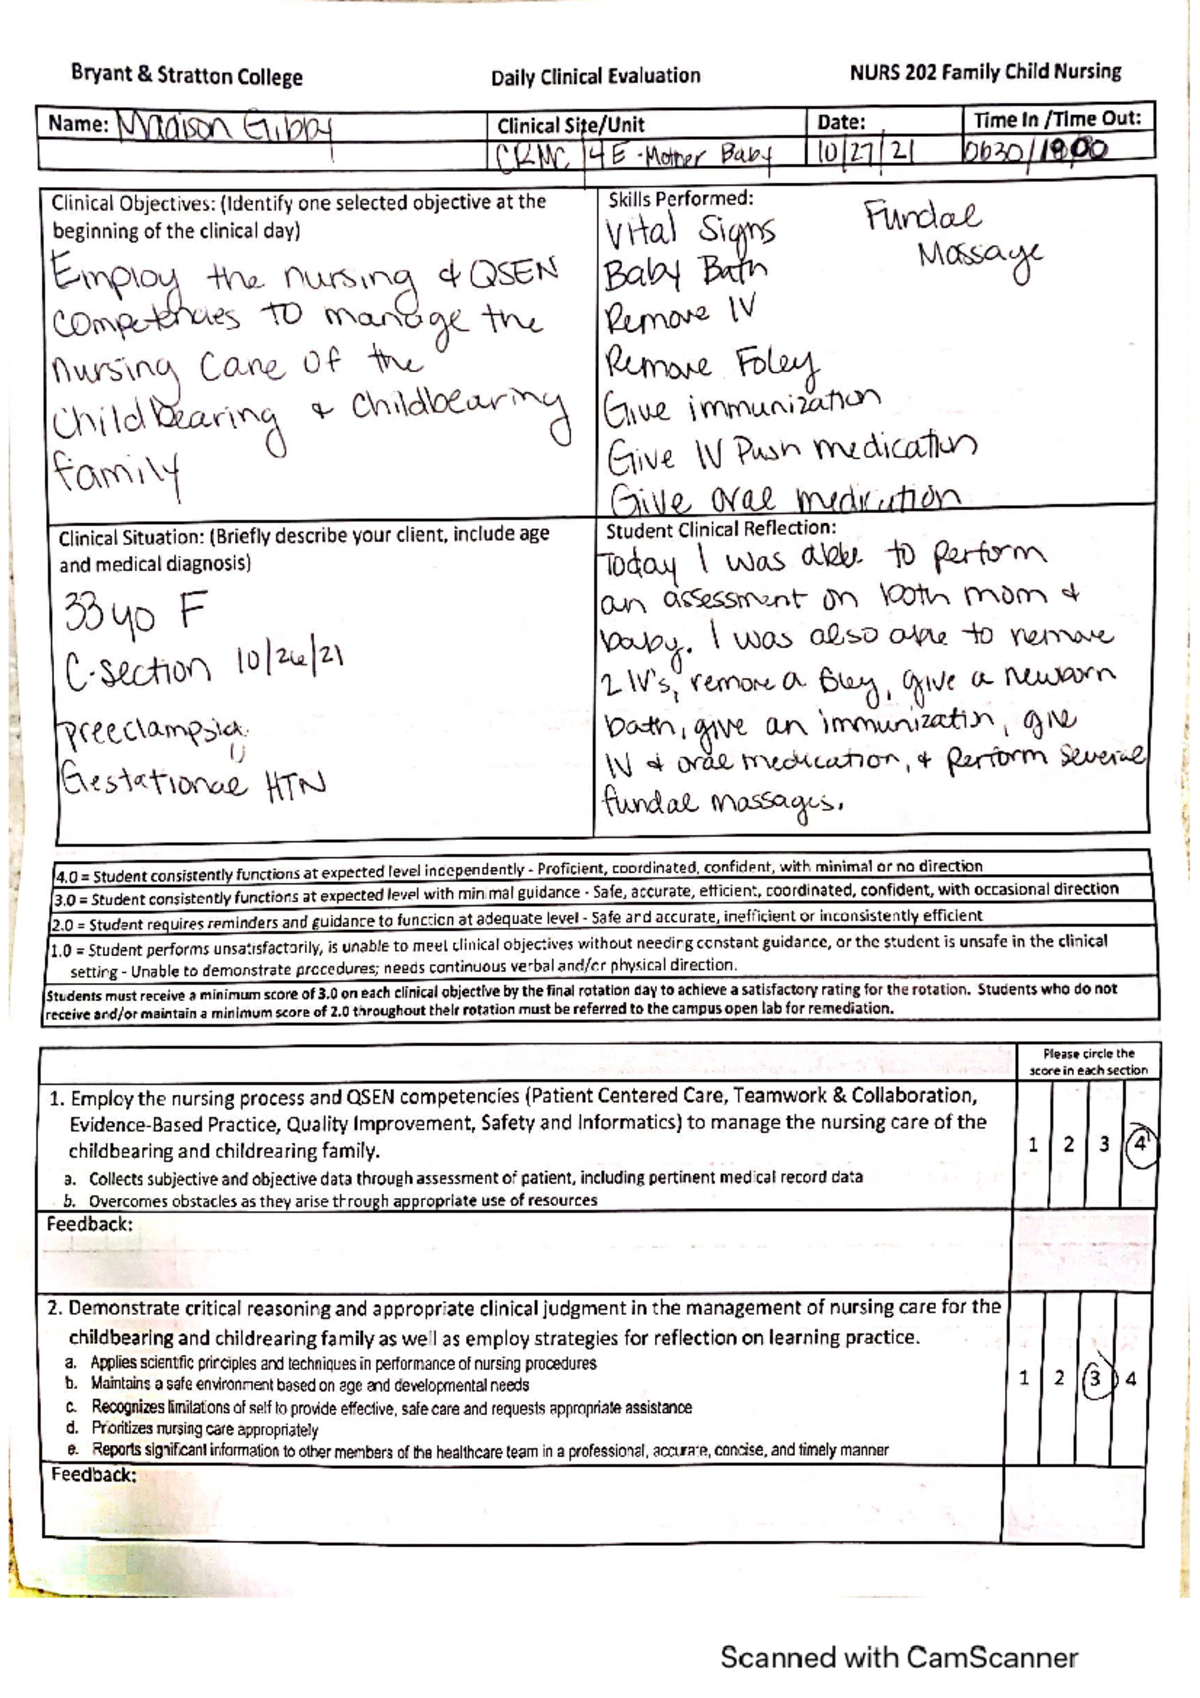 Bryant & Stratton College Daily Clinical Evaluation NURS 202 Family Child Nursing
Name: Madison Gibby Clinical Site/Unit Date: Time In /Time Out:
CRMC 4E - Mother Baby 10/27/21 0630/1800
Clinical Objectives: (Identify one selected objective at the
beginning of the clinical day)
Employ the nursing & QSEN
competencies to manage the
nursing care of the
childbearing & childbearing
family
Skills Performed:
Vital Signs
Baby Bath
Remove IV
Remove Foley
Give immunization
Give IV Push medication
Give oral medication
Fundal
Massage
Clinical Situation: (Briefly describe your client, include age
and medical diagnosis)
33 yo F
C-section 10/26/21
preeclampsia
Gestational HTN
Student Clinical Reflection:
Today I was able to perform
an assessment on both mom &
baby. I was also able to remove
2 IV's, remove a foley, give a newborn
bath, give an immunization, give
IV & oral medication, & perform several
fundal massages.
4.0 = Student consistently functions at expected level independently - Proficient, coordinated, confident, with minimal or no direction
3.0 = Student consistently functions at expected level with minimal guidance - Safe, accurate, efficient, coordinated, confident, with occasional direction
2.0 = Student requires reminders and guidance to function at adequate level - Safe and accurate, inefficient or inconsistently efficient
1.0 = Student performs unsatisfactorily, is unable to meet clinical objectives without needing constant guidance, or the student is unsafe in the clinical
setting - Unable to demonstrate procedures; needs continuous verbal and/or physical direction.
Students must receive a minimum score of 3.0 on each clinical objective by the final rotation day to achieve a satisfactory rating for the rotation. Students who do not
receive and/or maintain a minimum score of 2.0 throughout their rotation must be referred to the campus open lab for remediation.
Please circle the
score in each section
1. Employ the nursing process and QSEN competencies (Patient Centered Care, Teamwork & Collaboration,
Evidence-Based Practice, Quality Improvement, Safety and Informatics) to manage the nursing care of the
childbearing and childrearing family.
a. Collects subjective and objective data through assessment of patient, including pertinent medical record data
b. Overcomes obstacles as they arise through appropriate use of resources
1 2 3 4
Feedback:
2. Demonstrate critical reasoning and appropriate clinical judgment in the management of nursing care for the
childbearing and childrearing family as well as employ strategies for reflection on learning practice.
a. Applies scientific principles and techniques in performance of nursing procedures
b. Maintains a safe environment based on age and developmental needs
c. Recognizes limitations of self to provide effective, safe care and requests appropriate assistance
d. Prioritizes nursing care appropriately
e. Reports significant information to other members of the healthcare team in a professional, accurate, concise, and timely manner
1 2 3 4
Feedback:
Scanned with CamScanner